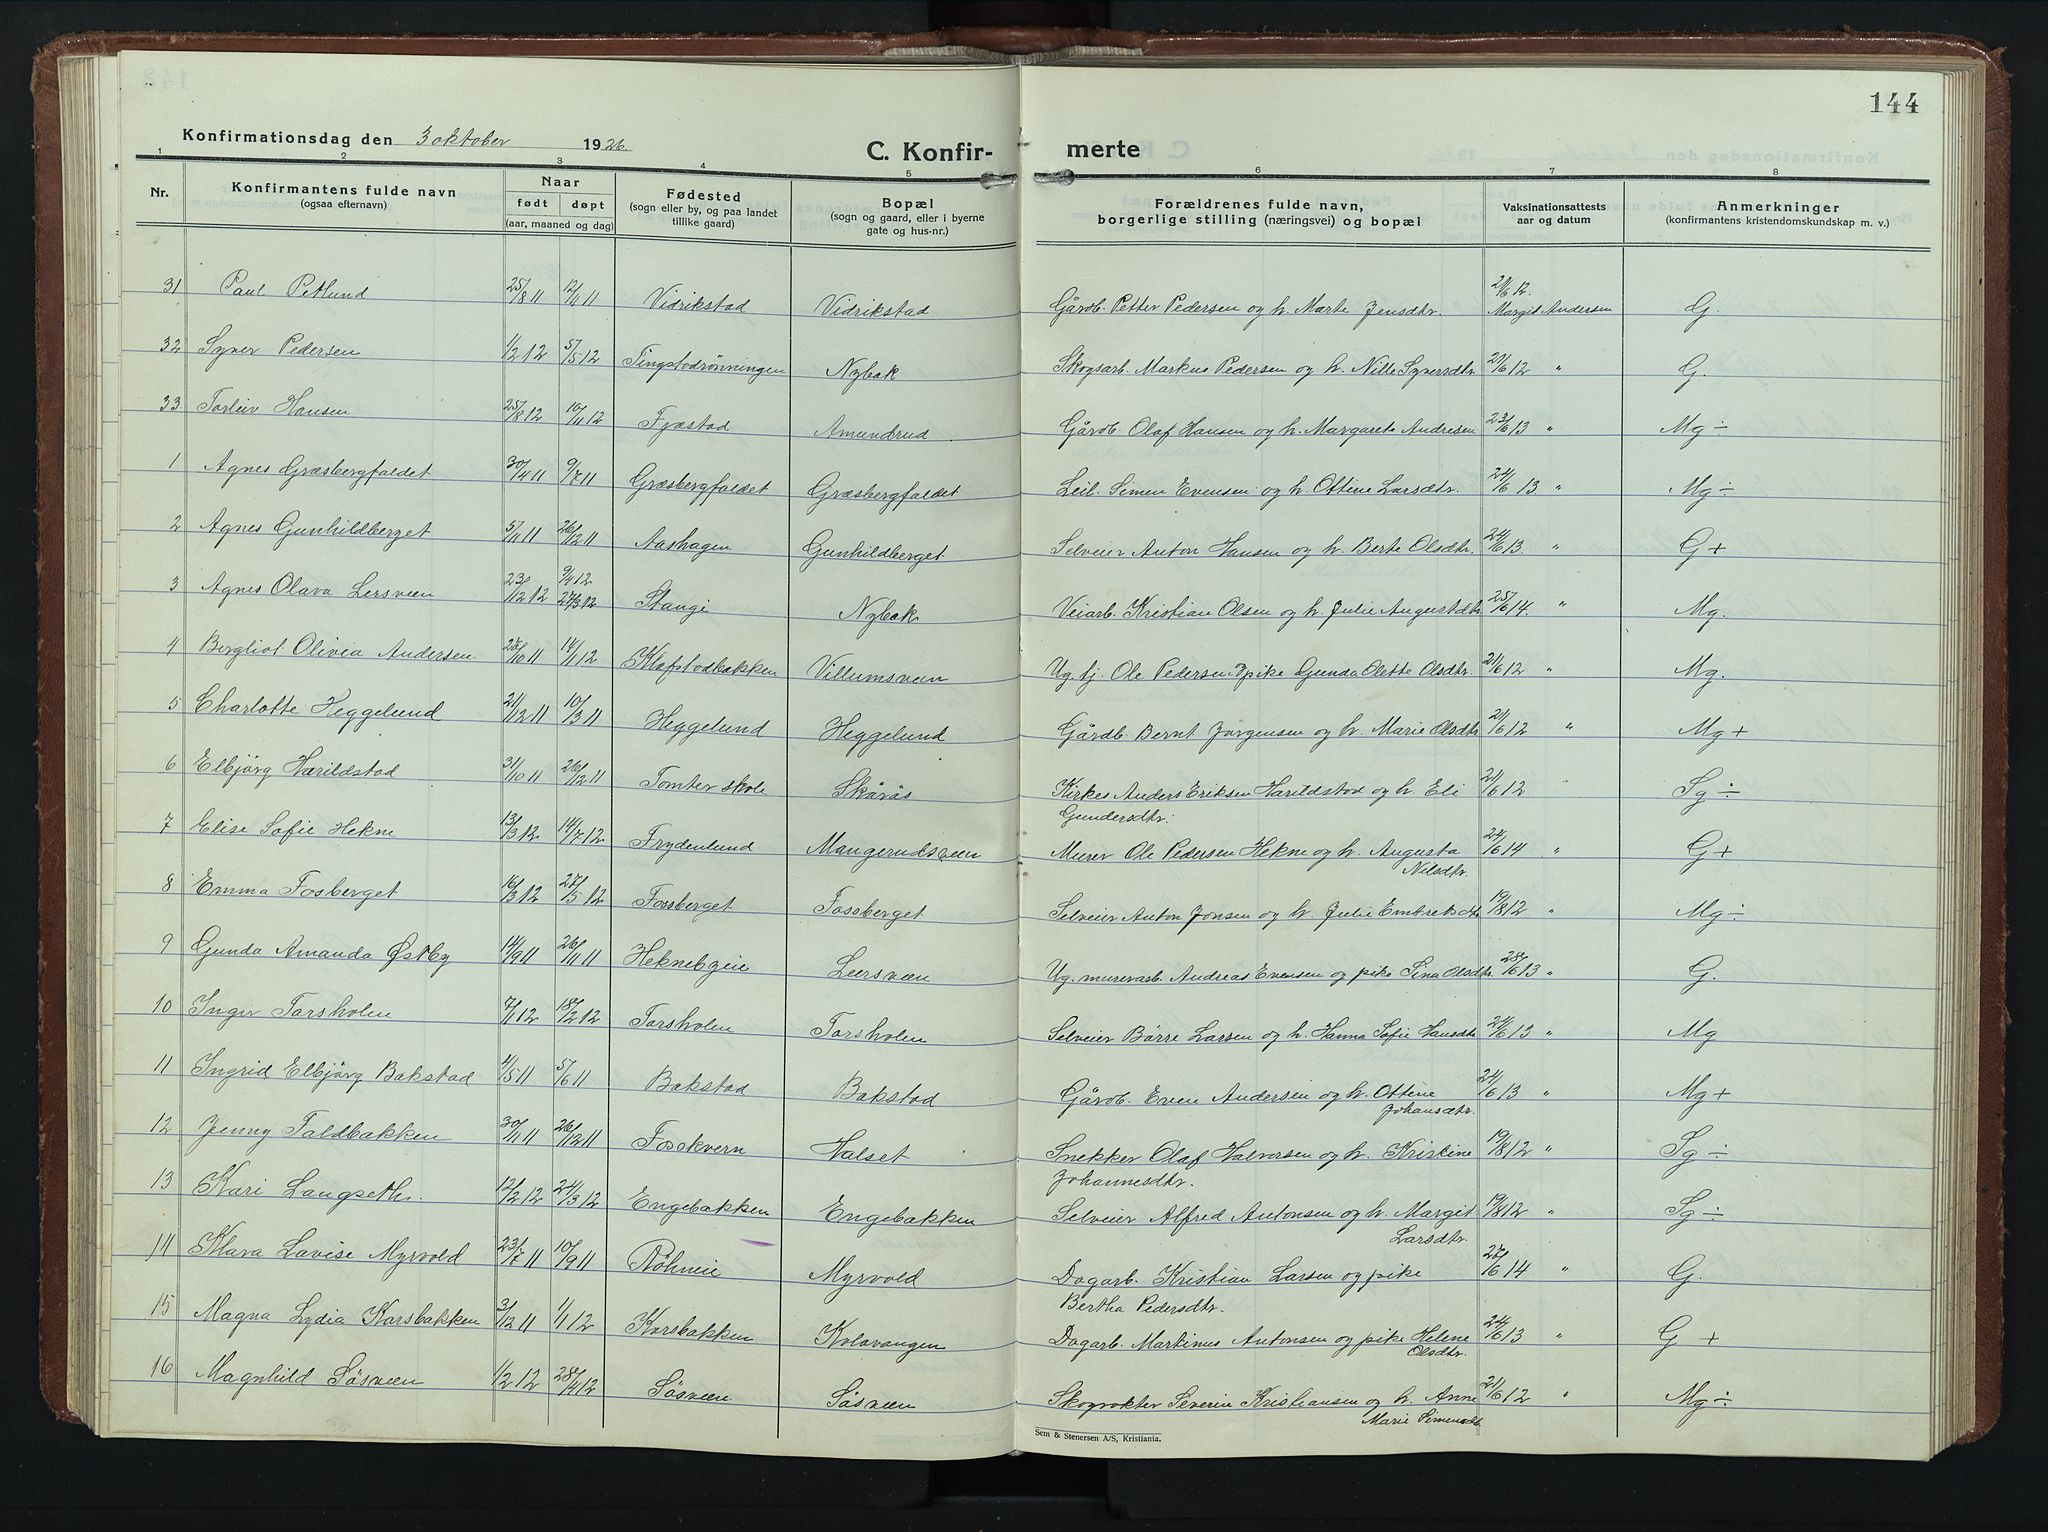 144
Konfirmationsdag den 3 oktober 1926.
C. Konfir- merte
1 2 3 4 5 6 7 8
Nr. Konfirmantens fulde navn (ogsaa efternavn) Naar født døpt (aar, maaned og dag) Fødested (sogn eller by, og paa landet tillike gaard) Bopæl (sogn og gaard, eller i byerne gate og hus-nr.) Forældrenes fulde navn, borgerlige stilling (næringsvei) og bopæl Vaksinationsattests aar og datum Anmerkninger (konfirmantens kristendomskundskap m. v.)
31 Paul Petlund 25/8 11 12/11 11 Vidrikstad Vidrikstad Gårdb. Petter Pedersen og h. Marte Jensdtr. 21/6 12. Margit Andersen G.
32 Syver Pedersen 1/2 12 5/5 12 Tingstadrønningen Nybak Skogsarb. Markus Pedersen og h. Nille Syversdtr 21/6 12 " G.
33 Torleiv Hansen 25/8 12 10/11 12 Fjæstad Amundrud Gårdb. Olaf Hansen og h. Margarete Andresen 23/6 13 " Mg ÷
1 Agnes Græsbergfaldet 30/4 11 9/7 11 Græsbergfaldet Græsbergfaldet Leil. Simen Evensen og h. Ottene Larsdtr. 24/6 13 " Mg ÷
2 Agnes Gunhildberget 5/11 11 26/12 11 Aashagen Gunhildberget Selveier Anton Hansen og h. Berte Olsdtr. 24/6 13. " G +
3 Agnes Olava Lersveen 23/12 12 9/4 12 27/3 12 Stangi Nybak Veiarb. Kristian Olsen og h. Julie Augustdtr 25/6 14. " Mg.
4 Bergliot Olivia Andersen 25/10 11 14/1 12 Kløfstadbakken Villumsveen Ug. tj. Ole Pedersen, pike Gunda Olette Olsdtr. 21/6 12 " Mg.
5 Charlotte Heggelund 21/12 11 10/3 11 Heggelund Heggelund Gårdb. Bernt Jørgensen og h. Marie Olsdtr 21/6 12 " Mg +
6 Elbjörg Harildstad 31/10 11 26/12 11 Tomter skole Skårås Kirkes. Anders Eriksen Harildstad og h. Eli 21/6 12 " Sg ÷
Gundersdtr.
7 Elise Sofie Hekne 13/3 12 14/7 12 Frydenlund Mangerudsveen Murer Ole Pedersen Hekne og h. Augusta 24/6 14 " G +
Nilsdtr.
8 Emma Fosberget 16/3 12 27/5 12 Fossberget Fossberget Selveier Anton Jonsen og h. Julie Embretsdtr 19/8 12 " Mg ÷
9 Gunda Amanda Østby 14/9 11 26/11 11 Heknebyeie Leersveen Ug. murerarb. Andreas Evensen og pike Tina Olsdtr. 28/6 13 " G.
10 Inger Torsholen 7/1 12 18/2 12 Torsholen Torsholen Selveier Börre Larsen og h. Hanna Sofie Hansdtr 24/6 13 " Mg
11 Ingrid Elbjörg Bakstad 4/5 11 5/6 11 Bakstad Bakstad Gårdb. Even Andersen og h. Ottine 24/6 13 " Mg +
Johansdtr.
12 Jenny Faldbakken 30/11 11 26/12 11 Fosskvern Halset Snekker Olaf Halvorsen og h. Kristine 19/8 12 " Sg ÷
Johannesdtr.
13 Kari Langseth. 12/2 12 24/3 12 Engebakken Engebakken Selveier Alfred Antonsen og h. Margit 19/8 12 " Sg ÷
Larsdtr.
14 Klara Lovise Myrvold 23/7 11 10/9 11 Röhneie Myrvold Dagarb. Kristian Larsen og pike 26/6 14 " G.
Bertha Pedersdtr.
15 Magna Lydia Korsbakken 3/12 11 1/1 12 Korsbakken Kolavangen Dagarb. Martinus Antonsen og pike Helene 24/6 13 " G +
Olsdtr.
16 Magnhild Søsveen 1/2 12 28/4 12 Søsveen Søsveen Skogvokter Severin Kristiansen og h. Anne 21/6 12 " Mg ÷
Marie Simensdtr.
Sem & Stenersen A/S, Kristiania.